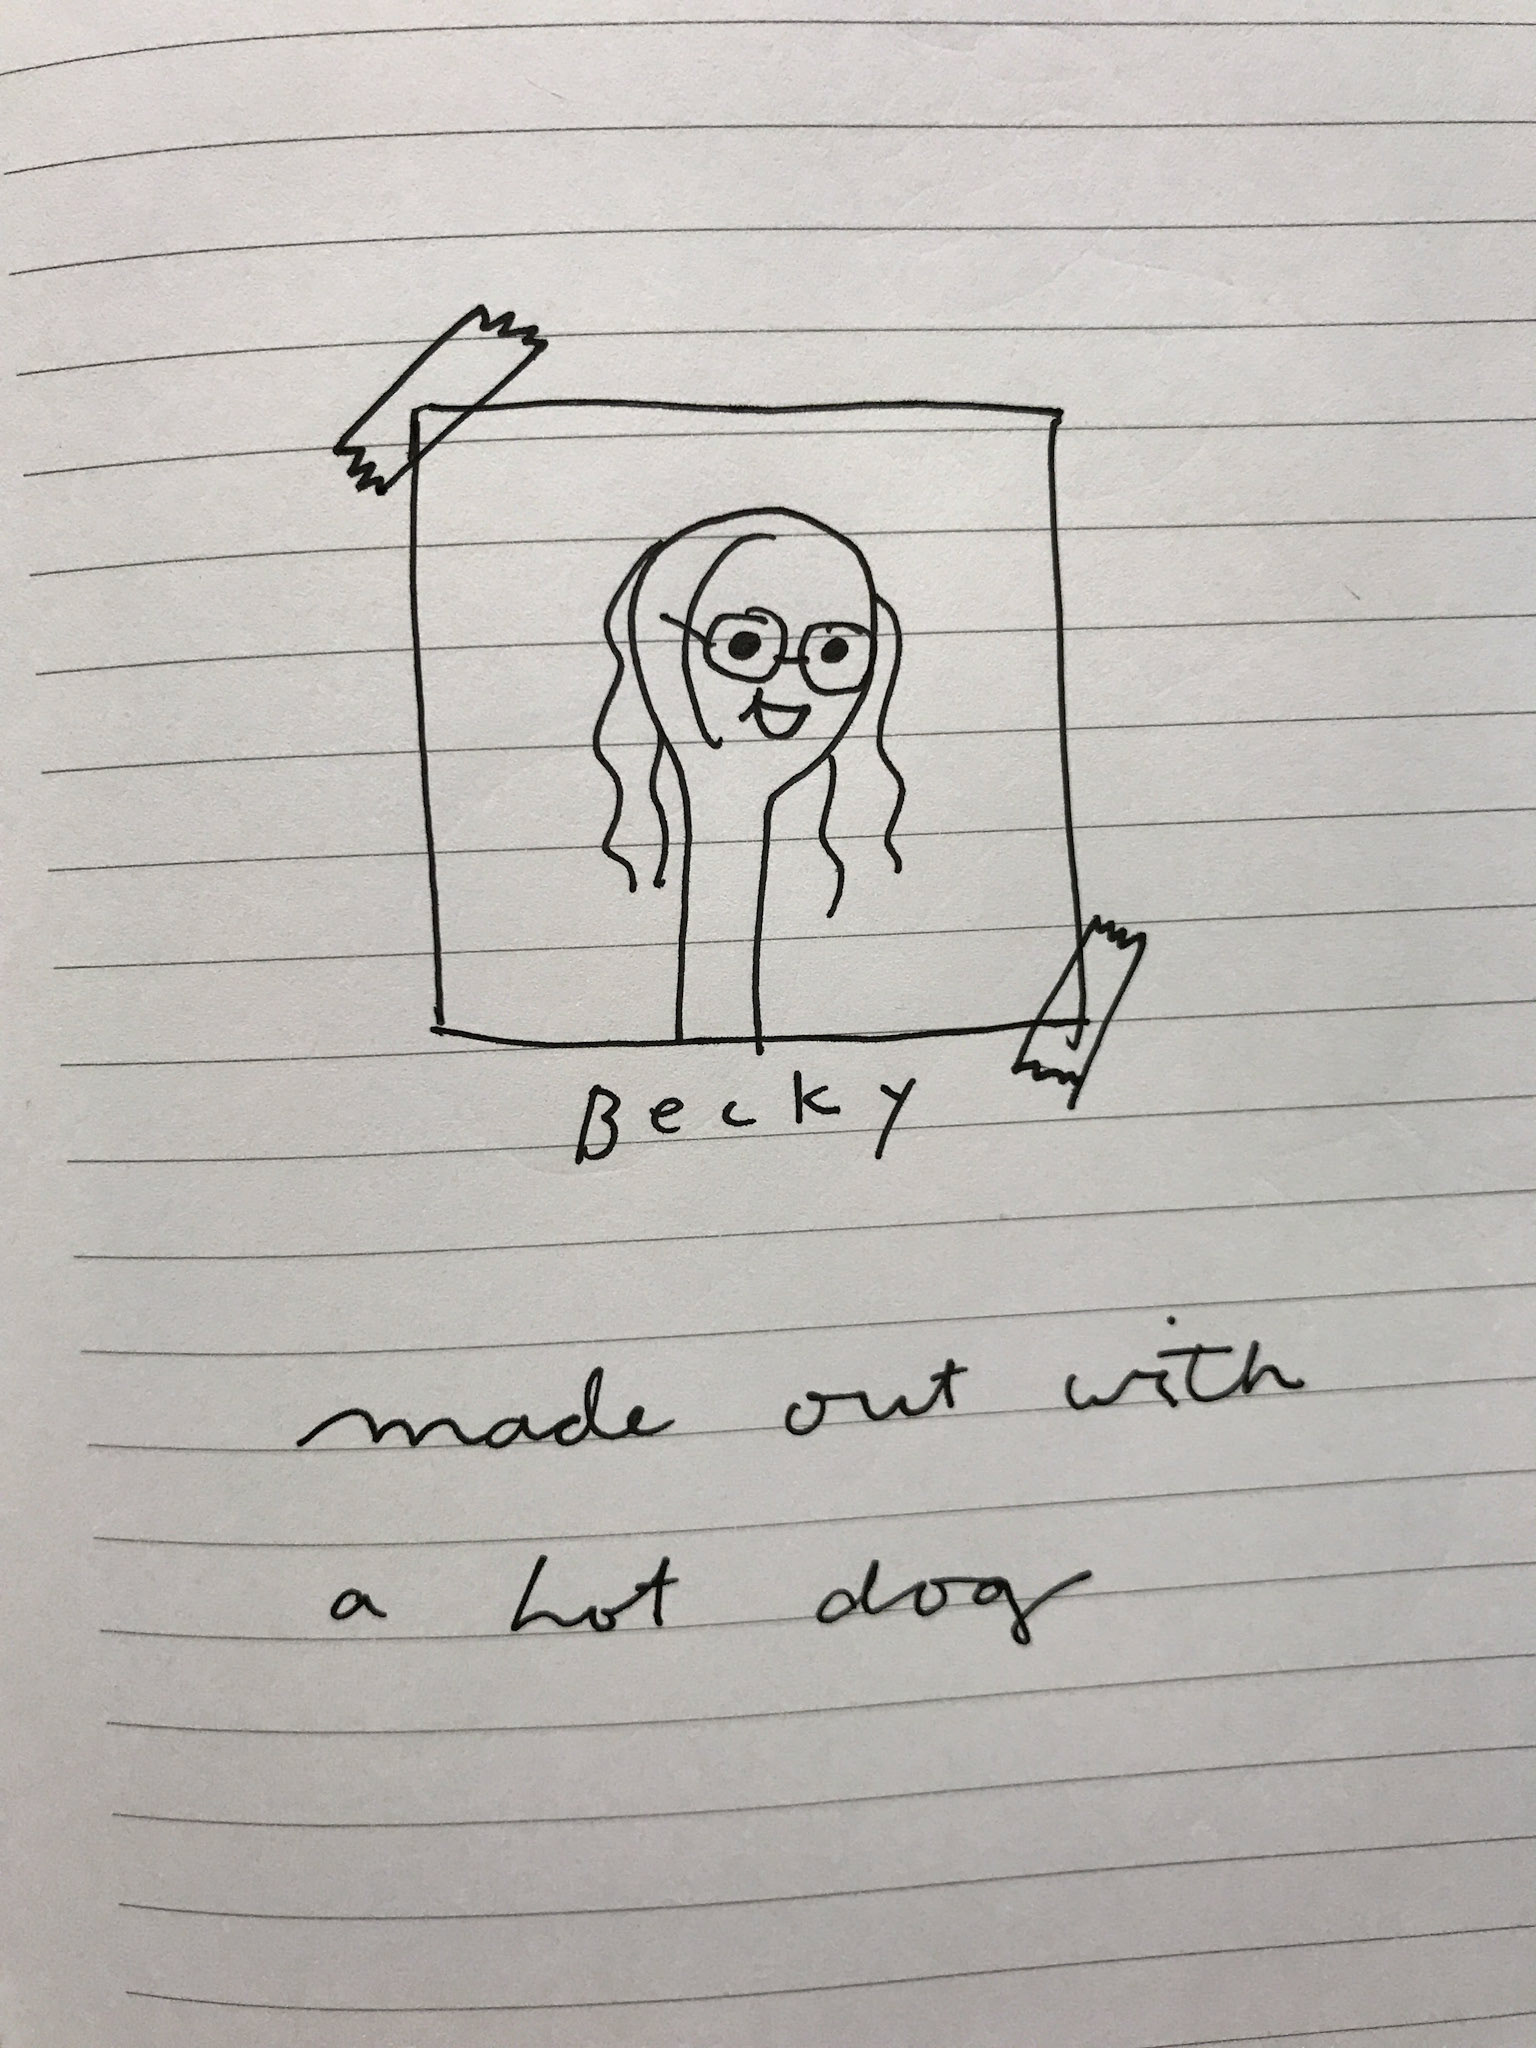 Becky
made out with
a hot dog